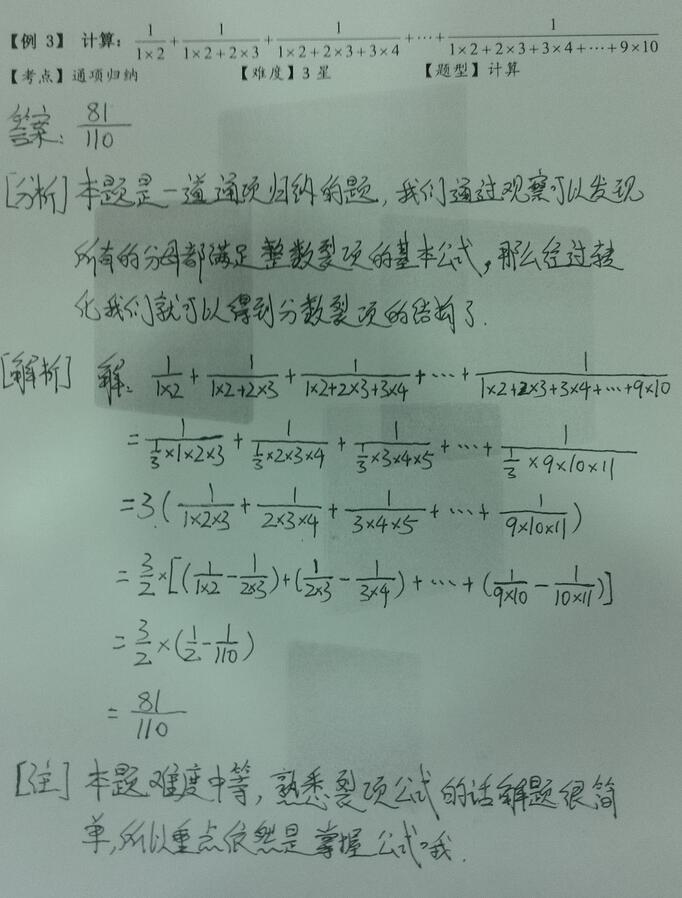 【例 3】 计算：1/(1×2) + 1/(1×2+2×3) + 1/(1×2+2×3+3×4) + ⋯ + 1/(1×2+2×3+3×4+⋯+9×10)
【考点】通项归纳 【难度】3 星 【题型】计算
答案：81/110
[分析] 本题是一道通项归纳的题，我们通过观察可以发现
所有的分母都满足整数裂项的基本公式，那么经过转
化我们就可以得到分数裂项的结构了.
[解析] 解：1/(1×2) + 1/(1×2+2×3) + 1/(1×2+2×3+3×4) + ⋯ + 1/(1×2+2×3+3×4+⋯+9×10)
= 1/(1/3×1×2×3) + 1/(1/3×2×3×4) + 1/(1/3×3×4×5) + ⋯ + 1/(1/3×9×10×11)
= 3.(1/(1×2×3) + 1/(2×3×4) + 1/(3×4×5) + ⋯ + 1/(9×10×11))
= 3/2×[(1/(1×2) − 1/(2×3)) + (1/(2×3) − 1/(3×4)) + ⋯ + (1/(9×10) − 1/(10×11))]
= 3/2×(1/2 − 1/110)
= 81/110
[注] 本题难度中等，熟悉裂项公式的话解题很简
单，所以重点依然是掌握公式哦.